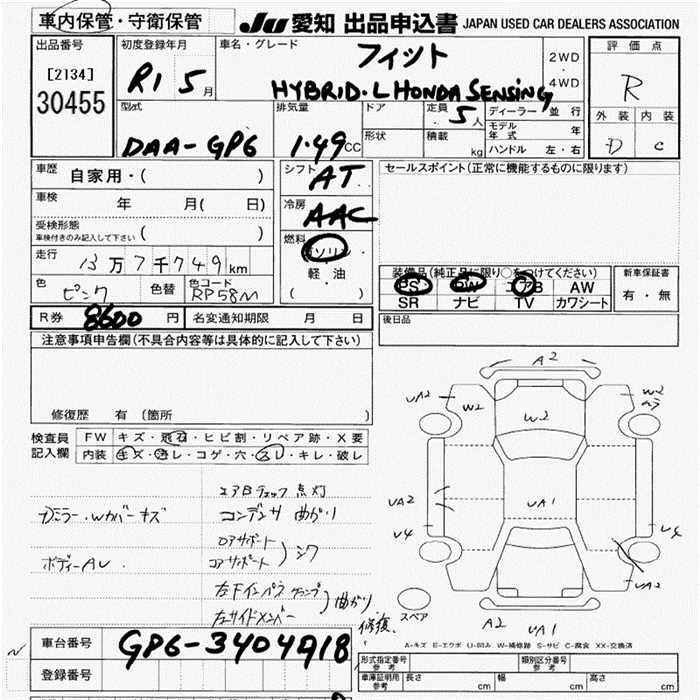 車内保管・守衛保管
JU 愛知 出品申込書 JAPAN USED CAR DEALERS ASSOCIATION
出品番号
[2134]
30455
初度登録年月
R1 5 月
車名・グレード
フィット
HYBRID・L HONDA SENSING
2WD
・
4WD
評価点
R
外装 内装
D C
型式
DAA-GP6
排気量
1.49 CC
ドア
形状
定員
5 人
積載
kg
ディーラー 並行
モデル年式 年
ハンドル 左・右
車歴
自家用・( )
車検
年 月( 日)
受検形態
車検付きのみ記入して下さい ( )
走行
13万7千749km
色
ピンク
色替
色コード
RP58M
シフト
AT
冷房
AAC
燃料
ガソリン
軽油
( )
セールスポイント(正常に機能するものに限ります)
装備品(純正品に限り○をつけてください)
PS PW エアB AW
SR ナビ TV カワシート
新車保証書
有・無
R券 8600 円
名変通知期限 月 日
後日品
注意事項申告欄(不具合内容等は具体的に記入して下さい)
修復歴 有(箇所 )
検査員記入欄
FW キズ・飛石・ヒビ割・リペア跡・X要
内装 キズ・汚レ・コゲ・穴・スレ・キレ・破レ
エアBチェック点灯
Dミラー・Wカバーキズ
コンデンサ曲がり
ロアサポート
コアサポート ) シワ
ボディーAU
左サイドメンバー
曲がり
修復
A2
UA2
W2
W2
W2
UA2
UA1
U4
U4
UA2
スペア
A2
UA1
A-キズ E-エクボ U-凹み W-補修跡 S-サビ C-腐食 XX-交換済
車台番号
GP6-3404918
登録番号
形式指定番号
参考
類別区分番号
参考
車庫証明用
参考
長さ cm
幅 cm
高さ cm